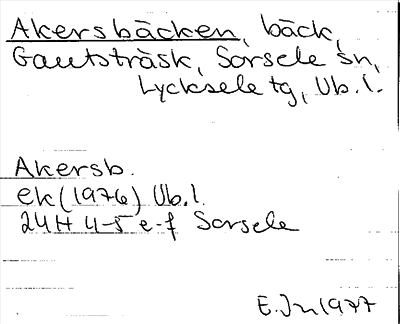 Akersbäcken, bäck,
Gautsträsk, Sorsele sn,
Lycksele tg, Vb. l.
Akersb.
ek (1976) Vb. l.
24H 4-5 e-f Sorsele
E. Jn 1977